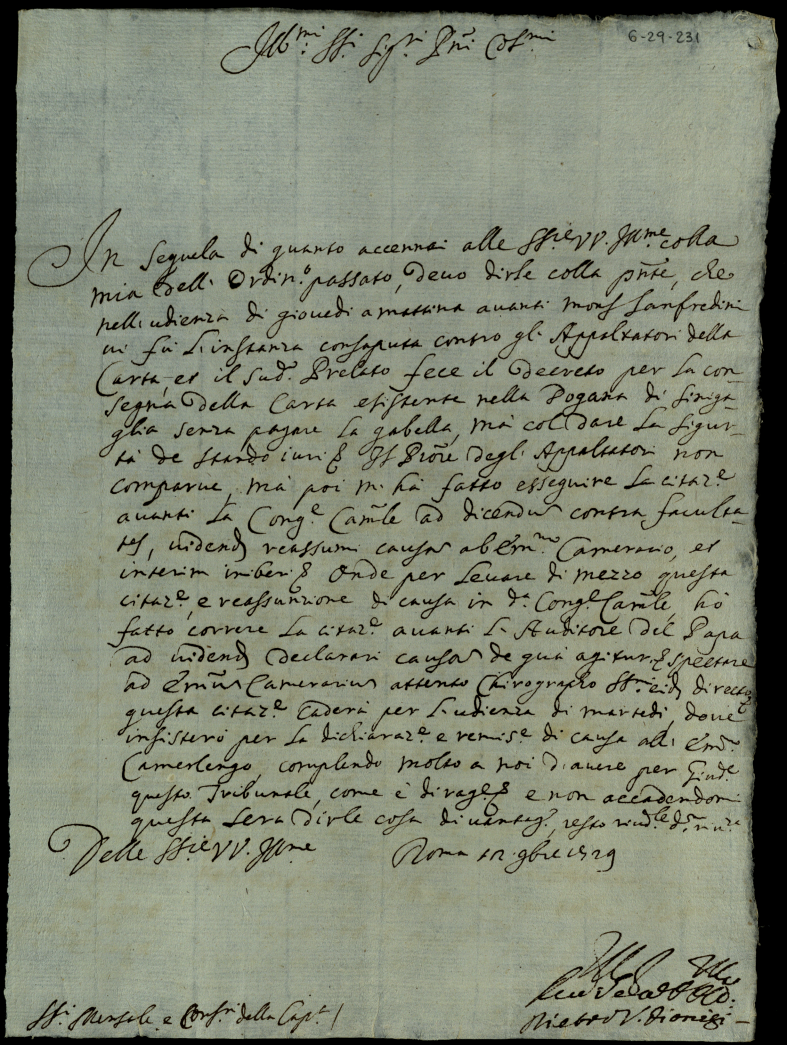 Ill.mi SS.i Sig.ri P.ni Col.mi
6-29-231
In sequela di quanto accennai alle SS.ie VV. Ill.me colla
mia dell'Ordin.o passato, devo dirle colla pñte, che
nell'udienza di giovedi a mattina avanti Mons Lanfredini
vi fù l'instanza consaputa contro gl'Appaltatori della
Carta, et il sud.o Prelato fece il Decreto per la con-
segna della Carta esistente nella Dogana di Siniga-
glia senza pagare la gabella, mà col dare la Sigur-
tà de stando iuri
degl'Appaltatori non
comparve, mà poi m'hà fatto esseguire la citaz.e
avanti la Cong.e Cam̃le ad dicendũ contra faculta-
tes, videnđ reassumi causas ab Em̃.mo Camerario, et
interim iniberi Onde per levare di mezzo questa
citaz.e, e reassunzione di causa in d.a Cong.e Cam̃le, hò
fatto correre la citaz.e avanti l'Auditore del Papa
ad videnđ declarari causas de qua agitur spectare
ad Em̃ũ Camerariũ attento Chirographo SS.mi eiđ directo
questa citaz.e caderà per l'udienza di martedi, dove
insisterò per la dichiaraz.e e remis.e di causa all'Em̃.o
Camerlengo, complendo molto a noi d'avere per Giud.e
questo Tribunale, come è di rag.e e non accadendomi
questa sera dirle cosa di vantag.o, resto
Delle SS.ie VV. Ill.me
Roma 12 9bre 1729
SS.i Consol.e e Cons.ri della Cap.ta
Pietro V. Dionigi